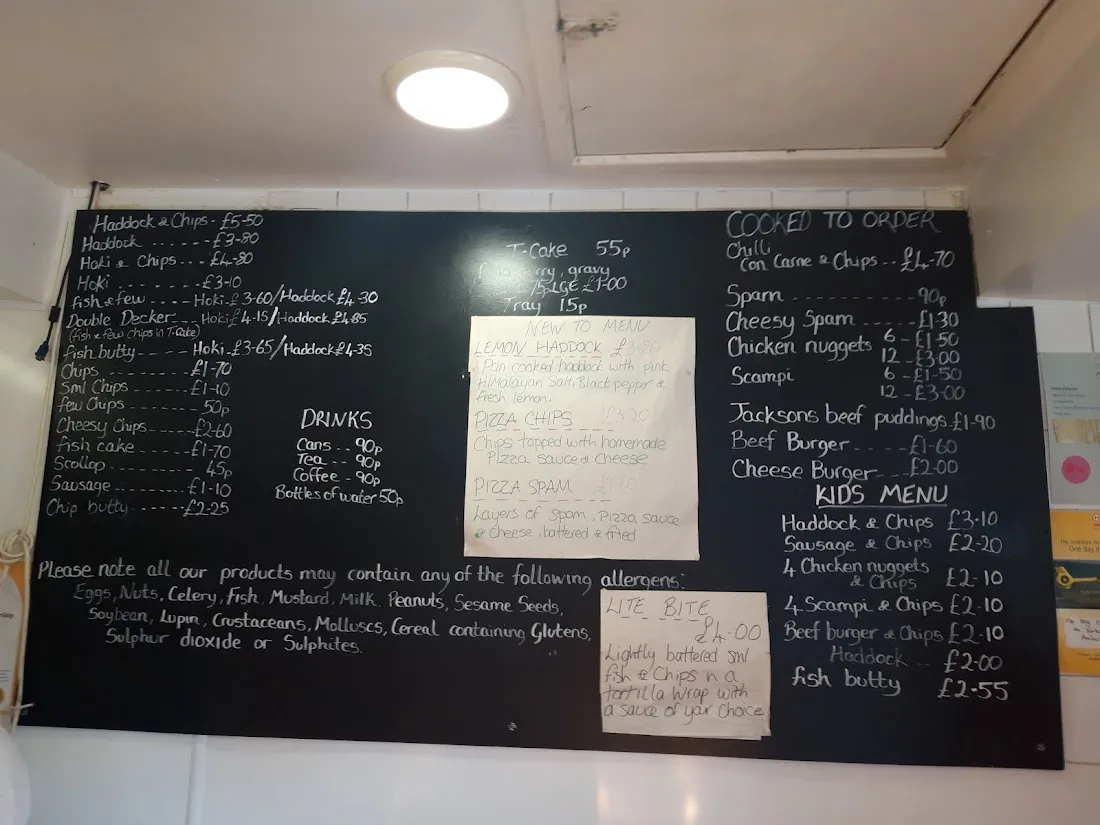 Haddock & Chips - £5-50
Haddock ...... - £3-80
Hoki & Chips ... - £4-80
Hoki . ........ - £3-10
fish & few ---- Hoki-£3-60/Haddock £4-30
Double Decker -- Hoki £4-15/Haddock £4-85
(fish & few chips in T-Cake)
fish butty ---- Hoki-£3-65/Haddock £4-35
Chips ......... £1-70
Sml Chips ------ £1-10
few Chips ------ 50p
Cheesy Chips ----- £2-60
fish cake ------- £1-70
Scollop ........ 45p
Sausage -------- £1-10
Chip butty ------ £2-25
DRINKS
Cans -- 90p
Tea --- 90p
Coffee - 90p
Bottles of water 50p
T-Cake 55p
gravy
LGE £1-00
Tray 15p
NEW TO MENU
LEMON HADDOCK
Pan cooked haddock with pink
Himalayan salt, Black pepper &
fresh lemon.
PIZZA CHIPS
Chips topped with homemade
Pizza sauce & Cheese
PIZZA SPAM
Layers of spam, Pizza sauce
& Cheese, battered & fried
COOKED TO ORDER
Chilli
Con Carne & Chips .. £4-70
Spam ------------- 90p
Cheesy Spam ------- £1-30
Chicken nuggets 6 - £1-50
12 - £3-00
Scampi 6 - £1-50
12 - £3-00
Jacksons beef puddings. £1-90
Beef Burger ---- £1-60
Cheese Burger --- £2-00
KIDS MENU
Haddock & Chips £3-10
Sausage & Chips £2-20
4 Chicken nuggets
& Chips £2-10
4 Scampi & Chips £2-10
Beef burger & Chips £2-10
Haddock .. £2-00
fish butty £2-55
Please note all our products may contain any of the following allergens:
Eggs, Nuts, Celery, Fish, Mustard, Milk, Peanuts, Sesame Seeds,
Soybean, Lupin, Crustaceans, Molluscs, Cereal containing Glutens,
Sulphur dioxide or Sulphites.
LITE BITE
£4.00
Lightly battered sml
fish & Chips in a
tortilla Wrap with
a sauce of your Choice